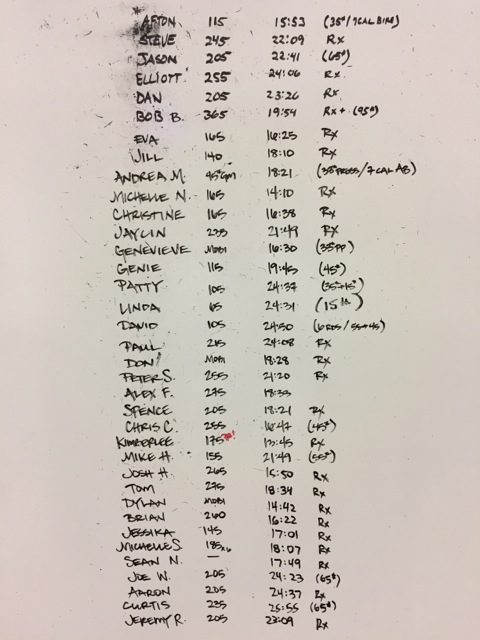 AFTON 115 15:53 (35#/7CAL BIKE)
STEVE 245 22:09 Rx
JASON 205 22:41 (65#)
ELLIOTT 255 24:06 Rx
DAN 205 23:26 Rx
BOB B. 365 19:54 Rx+ (95#)
EVA 165 16:25 Rx
JILL 140 18:10 Rx
ANDREA M. 45# 6pm 18:21 (35#PRESS/7 CAL AB)
MICHELLE N. 165 14:10 Rx
CHRISTINE 165 16:38 Rx
JAYLIN 235 21:49 Rx
GENEVIEVE MOBI 16:30 (35#PP)
GENIE 115 19:45 (45#)
PATTY 105 24:37 (35#+15#)
LINDA 65 24:31 (15#)
DAVID 105 24:50 (6 RDS/55#+45#)
PAUL 215 24:08 Rx
DON MOBI 18:28 Rx
PETER S. 255 21:20 Rx
ALEX F. 275 18:33
SPENCE 205 18:21 Rx
CHRIS C. 255 16:47 (45#)
KIMBERLEE 175 13:45 Rx
MIKE H. 155 21:49 (55#)
JOSH H. 265 15:50 Rx
TOM 275 18:34 Rx
DYLAN MOBI 14:42 Rx
BRIAN 260 16:22 Rx
JESSIKA 145 17:01 Rx
MICHELLE S. 185x6 18:07 Rx
SEAN N. — 17:49 Rx
JOE W. 205 24:23 (65#)
AARON 205 24:37 Rx
CURTIS 235 25:55 (65#)
JEREMY R. 205 23:09 Rx